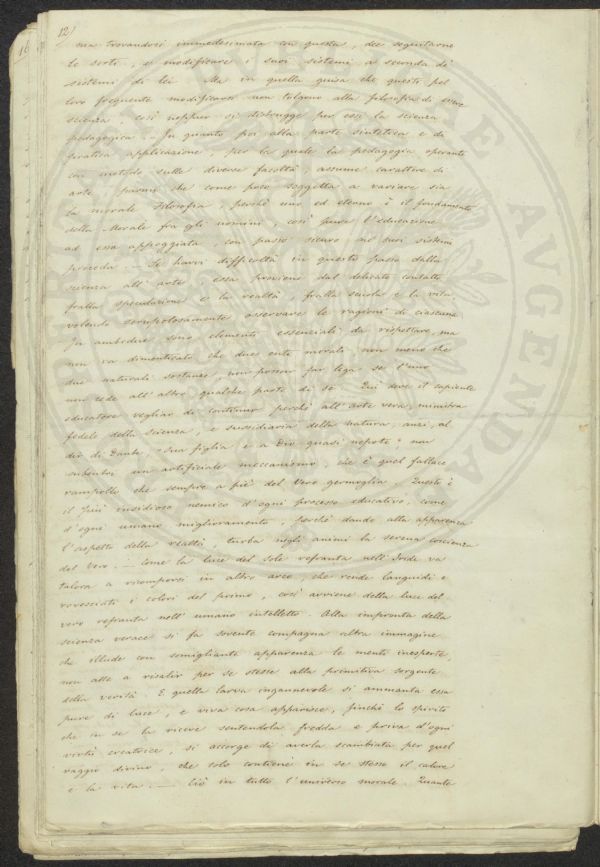 12)
ma trovandosi immedesimata con questa, dee seguitarne
le sorti, e modificare i suoi sistemi a seconda de'
sistemi di lei. Ma in quella guisa che questi pel
loro frequente modificarsi non tolgono alla filosofia di essere
scienza, così neppur si distrugge per essi la scienza
pedagogica. - In quanto poi alla parte sintetica e di
pratica applicazione, per la quale la pedagogia operante
con metodo sulle diverse facoltà, assume carattere di
arte, parmi che come poco soggetta a variare sia
la morale Filosofia, perchè uno ed eterno è il fondamento
della Morale fra gli uomini, così pure l'educazione
ad essa appoggiata, con passo sicuro ne' suoi sistemi
proceda. - Se havvi difficoltà in questo passo dalla
scienza all'arte essa proviene dal delicato contatto
fralla speculazione e la realtà, fralla scuola e la vita,
volendo scrupolosamente osservare le ragioni di ciascuna.
In ambedue sono elementi essenziali da rispettare, ma
non va dimenticato che due enti morali non meno che
due naturali sostanze non posson far lega se l'uno
non cede all'altro qualche parte di se. Qui deve il sapiente
educatore vegliar di continuo perchè all'arte vera, ministra
fedele della scienza, e sussidiaria della natura, anzi, al
dir di Dante, "sua figlia e a Dio quasi nepote" non
subentri un artificiale meccanismo, che è quel fallace
rampollo che sempre a piè del Vero germoglia. Questo è
il più insidioso nemico d'ogni processo educativo, come
d'ogni umano miglioramento, perchè dando alla apparenza
l'aspetto della realtà, turba negli animi la serena coscienza
del Vero. - Come la luce del sole refranta nell'Iride va
talora a ricomporsi in altro arco, che rende languidi e
rovesciati i colori del primo, così avviene della luce del
vero refranta nell'umano intelletto. Alla impronta della
scienza verace si fa sovente compagna altra immagine
che illude con somigliante apparenza le menti inesperte,
non atte a risalir per se stesse alla primitiva sorgente
della verità. E quella larva ingannevole si ammanta essa
pure di luce, e viva cosa apparisce, finchè lo spirito
che in se la riceve sentendola fredda e priva d'ogni
virtù creatrice, si accorge di averla scambiata per quel
raggio divino, che solo contiene in se stesso il calore
e la vita. - Ciò in tutto l'universo morale. Quante